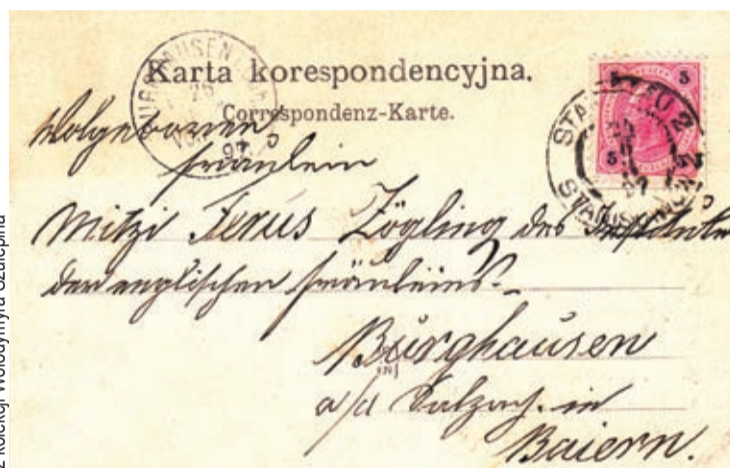 Karta korespondencyjna.
Correspondenz-Karte.
Wolgeboren
Fräulein
Mitzi Zögling des Institutes
der englischen Fräuleins.
Burghausen
a/d Salzach in
Baiern.
5 5
5 5
97
z kolekcji Wołodymyra Szulepina